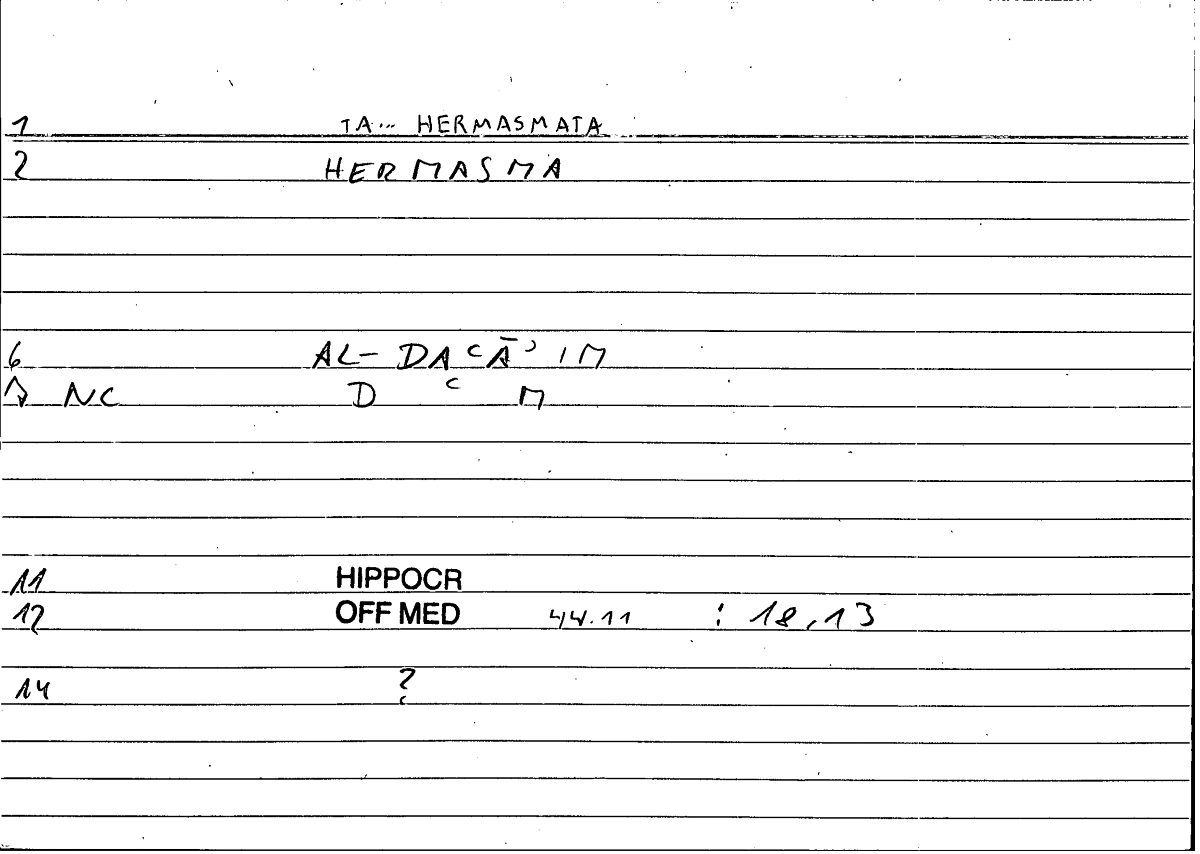 1 TA... HERMASMATA
2 HERMASMA
6 AL-DAʿĀʾIM
NC D ʿ M
11 HIPPOCR
12 OFF MED 44.11 : 18,13
14 ?